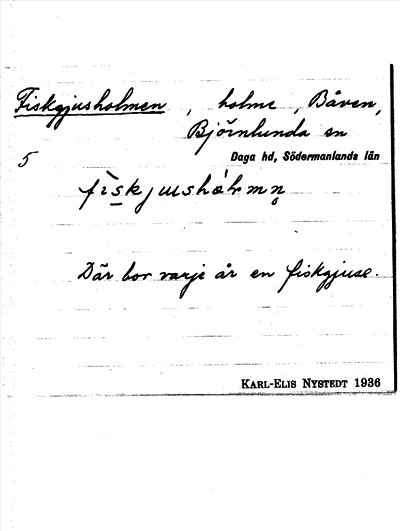 Fiskgjusholmen, holme, Båven,
Björnlunda sn
5 Daga hd, Södermanlands län
Där bor varje år en fiskgjuse.
KARL-ELIS NYSTEDT 1936